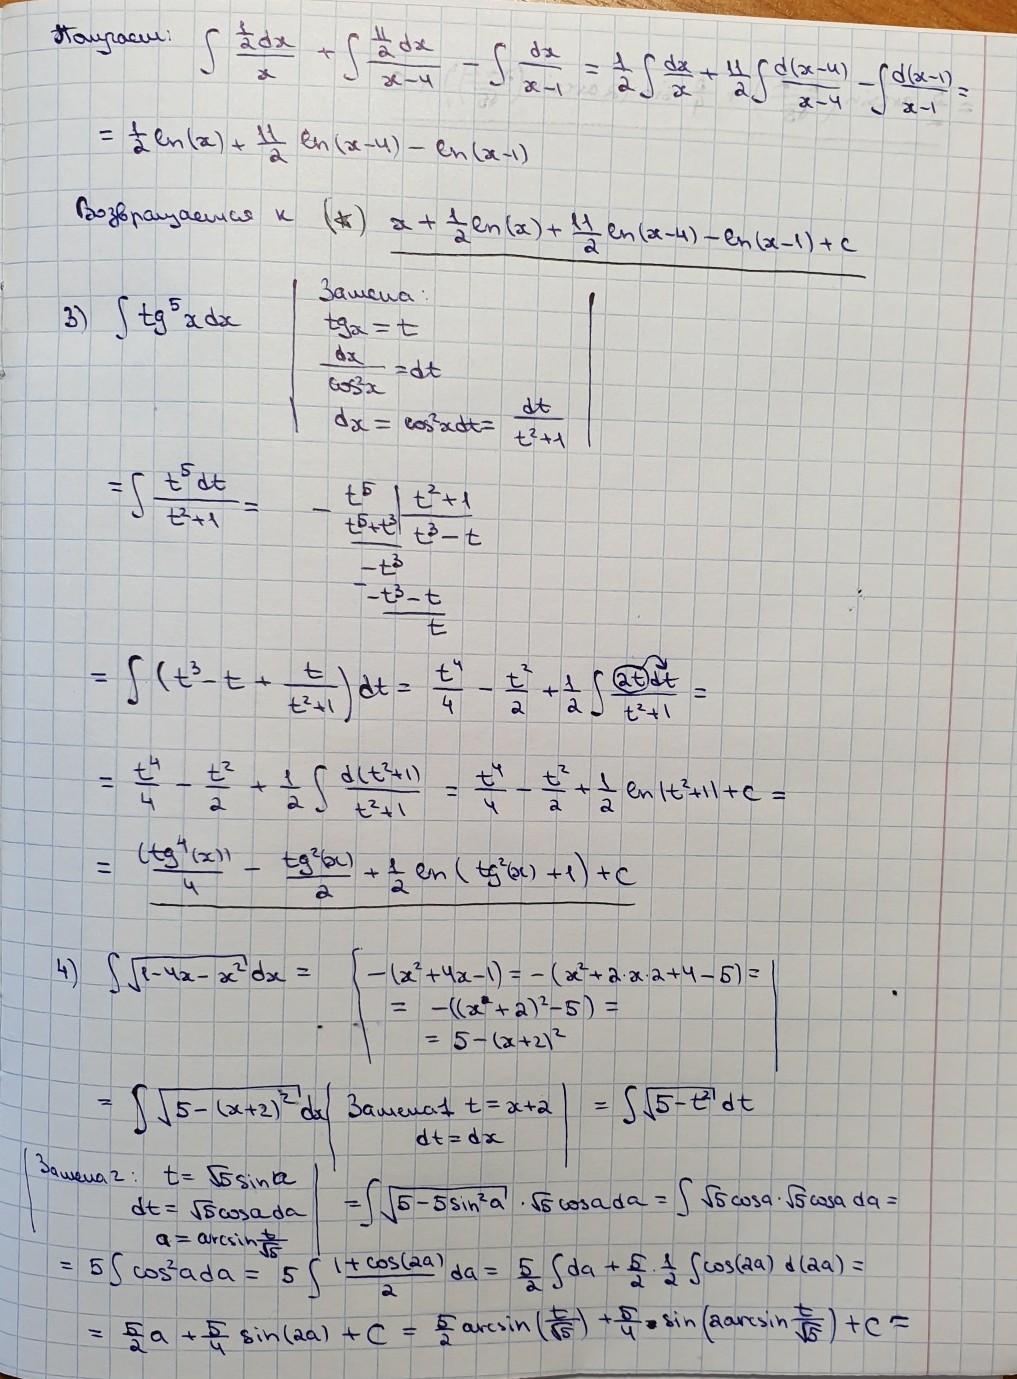 Получаем: ∫ (1/2 dx)/x + ∫ (11/2 dx)/(x-4) - ∫ dx/(x-1) = 1/2 ∫ dx/x + 11/2 ∫ d(x-4)/(x-4) - ∫ d(x-1)/(x-1) =
= 1/2 ln(x) + 11/2 ln(x-4) - ln(x-1)
Возвращаемся к (*) x + 1/2 ln(x) + 11/2 ln(x-4) - ln(x-1) + c
3) ∫ tg⁵x dx
Замена:
tgx = t
dx/cos²x = dt
dx = cos²x dt = dt/(t²+1)
= ∫ t⁵dt/(t²+1) =
- t⁵ | t²+1
t⁵+t³ | t³ - t
-t³
- -t³ - t
t
= ∫ (t³ - t + t/(t²+1)) dt = t⁴/4 - t²/2 + 1/2 ∫ 2t dt/(t²+1) =
= t⁴/4 - t²/2 + 1/2 ∫ d(t²+1)/(t²+1) = t⁴/4 - t²/2 + 1/2 ln|t²+1| + c =
= (tg⁴(x))/4 - tg²(x)/2 + 1/2 ln(tg²(x) + 1) + c
4) ∫ √(1-4x-x²) dx =
-(x²+4x-1) = -(x²+2·x·2+4-5) =
= -((x²+2)²-5) =
= 5-(x+2)²
= ∫ √(5-(x+2)²) dx | Замена1 t = x+2 | = ∫ √(5-t²) dt
dt = dx
Замена2: t = √5 sin a
dt = √5 cos a da
a = arcsin t/√5
= ∫ √(5-5sin²a) · √5 cos a da = ∫ √5 cos a · √5 cos a da =
= 5 ∫ cos²a da = 5 ∫ (1+cos(2a))/2 da = 5/2 ∫ da + 5/2 · 1/2 ∫ cos(2a) d(2a) =
= 5/2 a + 5/4 sin(2a) + C = 5/2 arcsin(t/√5) + 5/4 · sin(2arcsin t/√5) + C =